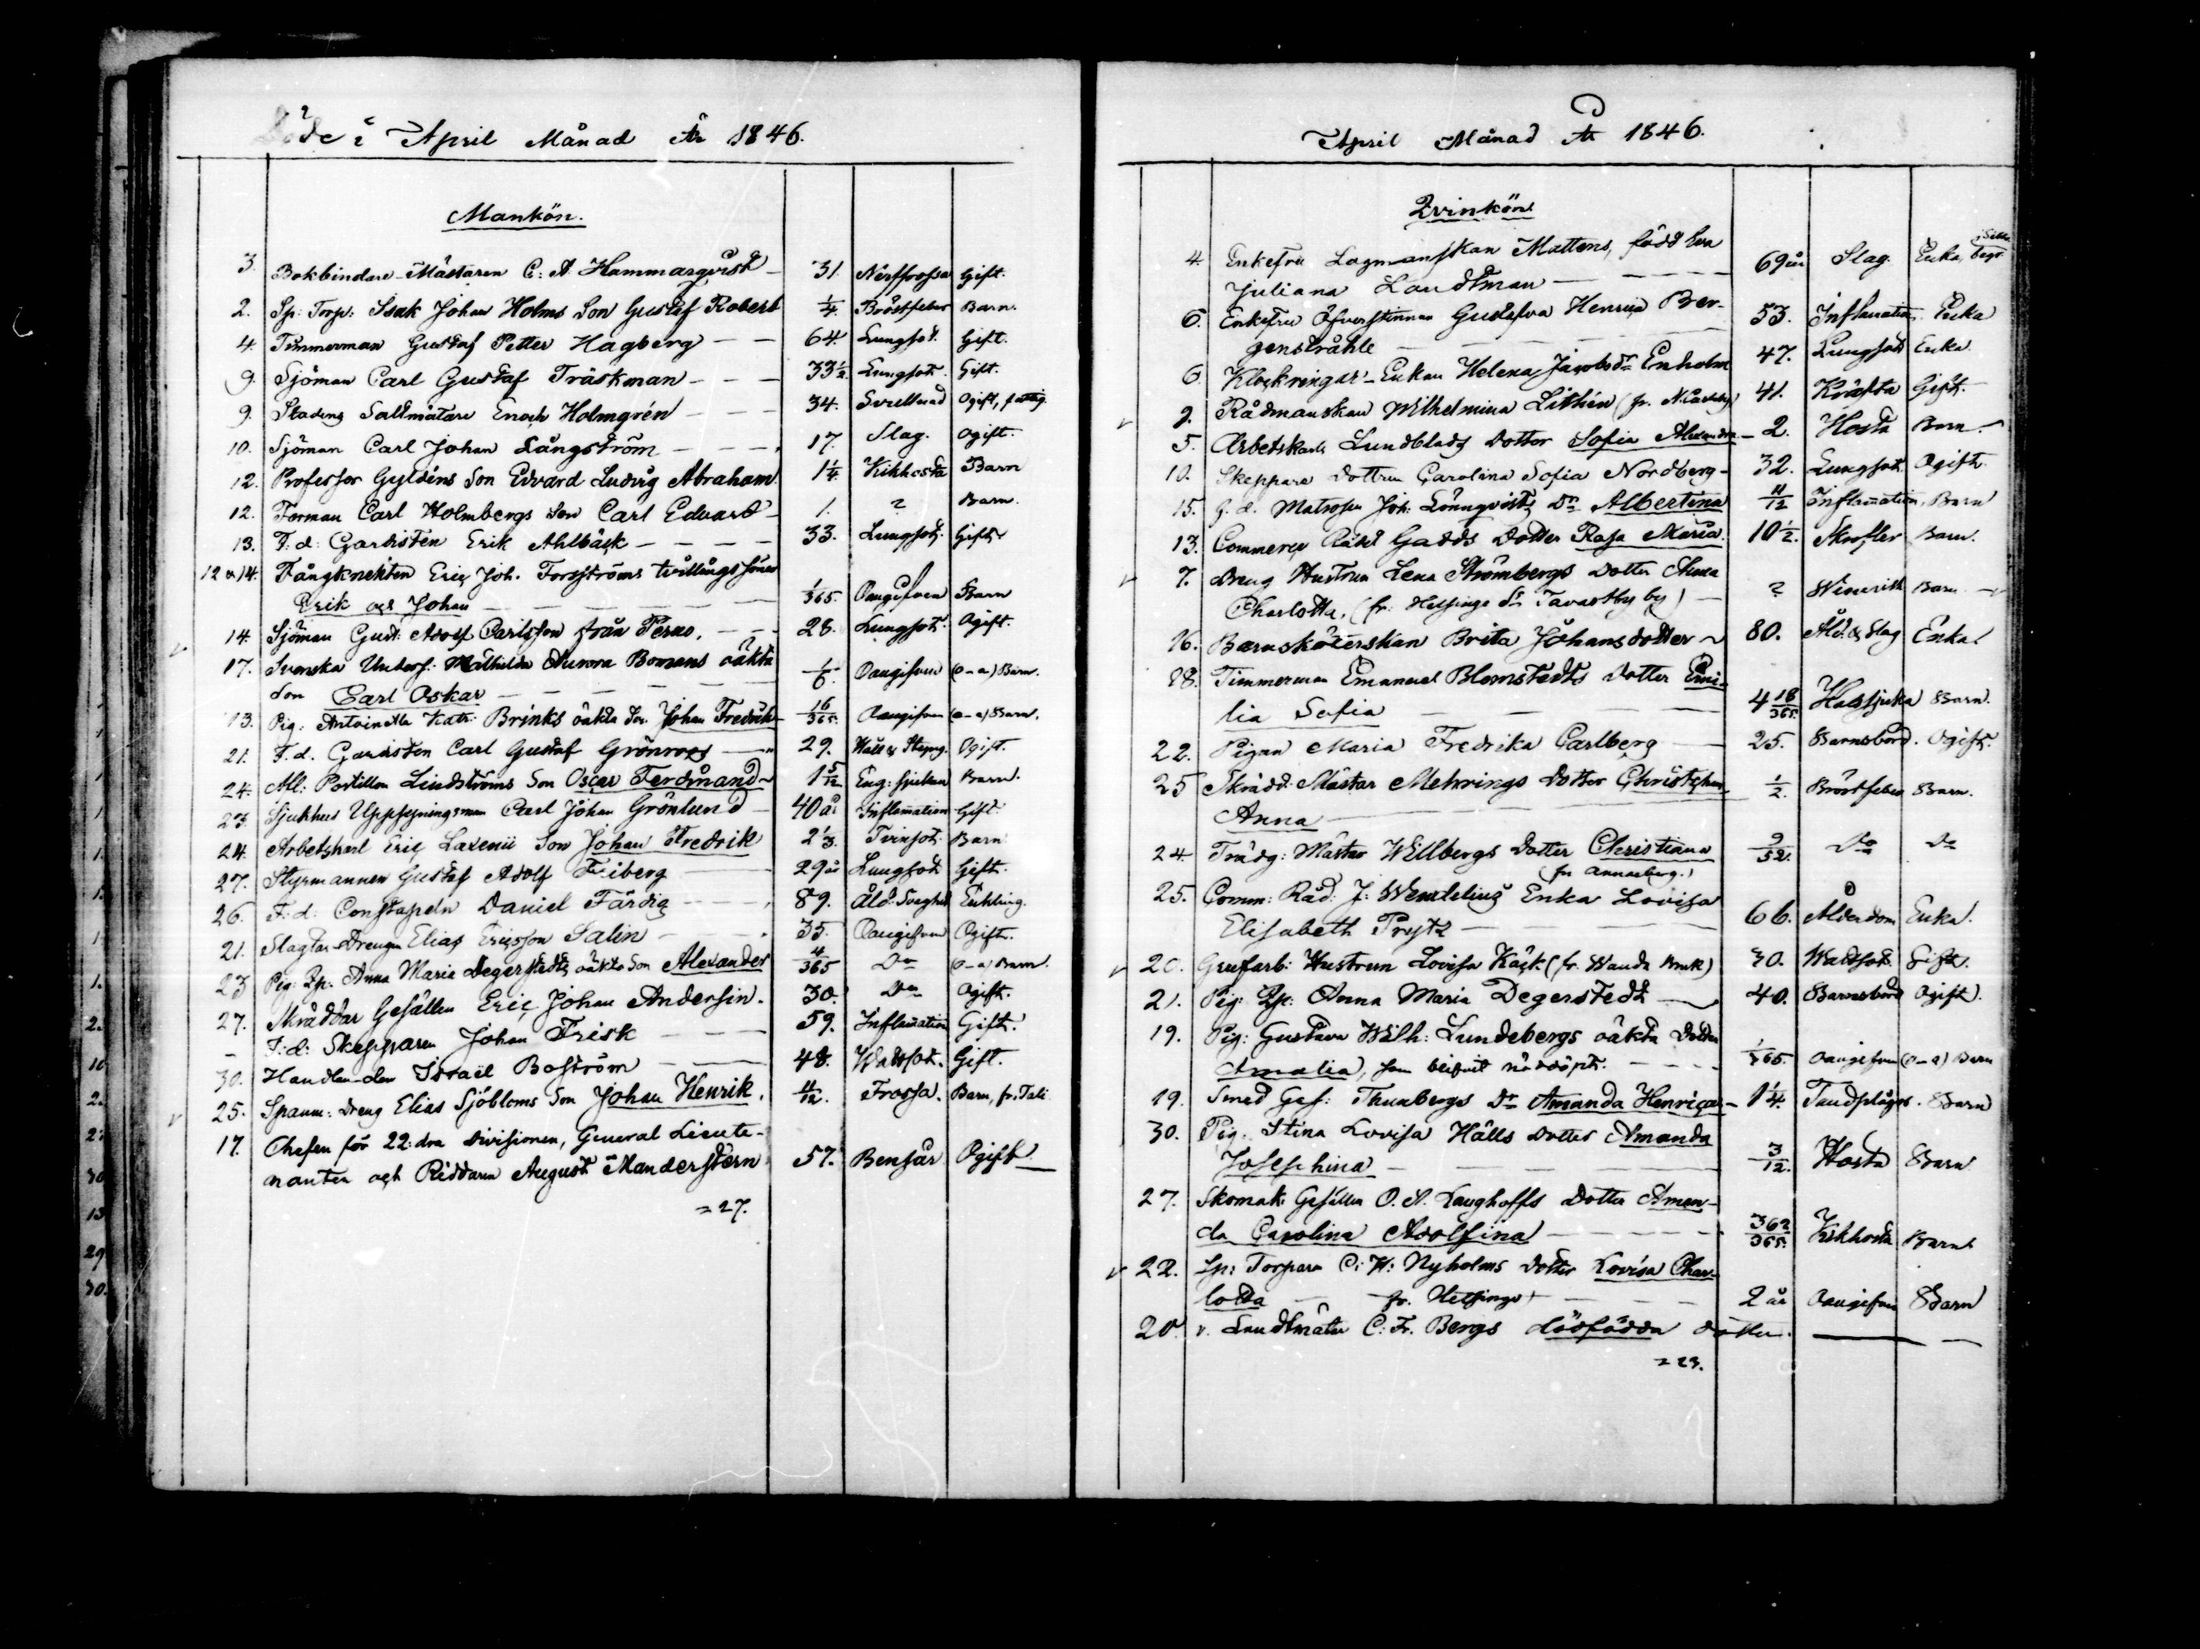 Döde i April Månad År 1846.
Mankön.
3. Bokbindare-Mästaren C: A. Hammarqvist 31. Nerffrossa Gift.
2. Sp: Torp: Isak Johan Holms Son Gustaf Robert 1/4. Bröstfeber Barn.
4. Timmerman Gustaf Petter Hagberg 64. Lungsot. Gift.
9. Sjöman Carl Gustaf Träskman 33 1/2. Lungsot. Gift.
9. Saltmätare Enoch Holmgrén 34. Ogift,
10. Sjöman Carl Johan Långström 17. Slag. Ogift.
12. Professor Gyldéns Son Edvard Ludvig Abraham 1 1/4. Kikhosta Barn
12. Forman Carl Holmbergs Son Carl Edvard 1. ? Barn.
13. F: d: Gardisten Erik Ahlbäck 33. Lungsot. Gift
12 & 14. Fångknekten Eric Joh. Forsströms tvillings söner
Erik och Johan 1/365. Oangifven Barn
14. Sjöman Gust: Adolf Carlsson från Perno. 28. Lungsot. Ogift.
17. Svenska Unders: Mathilda Aurora Bomans oäkta
Son Carl Oskar 1/6. Oangifven (o-ä) Barn.
13. Pig: Antoinetta Katr: Brinks oäkta Son Johan Fredrik 16/365. Oangifven (o-ä) Barn.
21. F. d. Gardisten Carl Gustaf Grönroos 29. Håll & Styng. Ogift.
24. Afl: Postillon Lindströms Son Oscar Ferdinand 1 5/12 Eng: sjukan Barn.
23. Sjukhus Uppsyningsman Carl Johan Grönlund 40 år Inflammation Gift.
24. Arbetskarl Eric Laxenii Son Johan Fredrik 2 1/3. Tvinsot. Barn
27. Styrmannen Gustaf Adolf Friberg 29 år Lungsot Gift.
26. F: d: Constapeln Daniel Färdig 89. Åld: Svaghet Enkling.
21. Slagtar-Drengen Elias Ericsson Salin 35. Oangifven Ogift.
23 Pig: Zp: Anna Maria Degerstedts oäkta Son Alexander 4/365 Do (o-ä) Barn.
27. Skräddar Gesällen Eric Johan Andersin. 30. Do Ogift.
– F: d: Skepparen Johan Frisk 59. Inflammation Gift.
30. Handlanden Israel Boström 48. Wattsot. Gift.
25. Spanm: Dreng Elias Sjöbloms Son Johan Henrik. 4/12. Frossa. Barn, fr. Tali
17. Chefen för 22:dra Divisionen, General Lieute-
nanten och Riddaren August Manderstern 57. Bensår Ogift
= 27.
April Månad År 1846.
Qvinkön.
4. Enkefru Lagmanskan Mattens, född Eva
Juliana Landtman 69 år Slag. Enka,
6. Enkefru Öfverstinnan Gustafva Henrica Bor-
genstråhle 53. Inflammation Enka
6. Klockringar-Enkan Helena Jacobsdr Enholm 47. Lungsot Enka.
9. Rådmanskan Wilhelmina Lithén 41. Kräfta Gift.
5. Arbetskarl Lundblads Dotter Sofia Alexandra 2. Hosta Barn
10. Skeppare Dottren Carolina Sofia Nordberg 32. Lungsot Ogift
15. F. d. Matrosen Joh: Lönnqvists Dr Albertina 11/12 Inflammation Barn
13. Commerce Rådet Gadds Dotter Rosa Maria 10 1/2. Skrofler Barn.
7. Dreng Hustrun Lena Strömbergs Dotter Anna
Charlotta, (fr: Helsinge Sn Tavastby by) ? Barn
16. Barnsköterskan Brita Johansdotter 80. Åld. & Slag Enka
18. Timmerman Emanuel Blomstedts Dotter Emi-
lia Sofia 4 18/365. Halssjuka Barn.
22. Pigan Maria Fredrika Carlberg 25. Barnsbörd. Ogift.
25 Skrädd: Mästar Mehrings Dotter
Anna 1/2. Bröstfeber Barn.
24. Trädg: Mästar Willbergs Dotter Christiana
(fr Annaeberg.) 9/52. Do Do
25. Comm: Råd: J: Wendelius Enka Lovisa
Elisabeth Prytz 66. Ålderdom Enka.
20. Grufarb: Hustrun Lovisa Käck. (fr. Wanda Bruk) 30. Wattsot Gift.
21. Pig: Zp: Anna Maria Degerstedt 40. Barnsbörd Ogift.
19. Pig: Gustava Wilh: Lundebergs oäkta Dotter
Amalia, som blifvit nöddöpt. 1/365 Oangifven (o-ä) Barn
19. Smed Ges: Thunbergs Dr Amanda Henrica 1 1/4. Tandplågor. Barn
30. Pig: Stina Lovisa Hälls Dotter Amanda
Josephina 3/12. Hosta Barn
27. Skomak: Gesällen O. A. Langhoffs Dotter Aman-
da Carolina Adolfina 362/365. Kikhosta Barn
22. Sp: Torpare C: H: Nyholms Dotter Lovisa Char-
lotta fr. Helsinge 2 år Oangifven Barn
20. v. Landtmätar C: Fr. Bergs dödfödda dotter.
= 23.